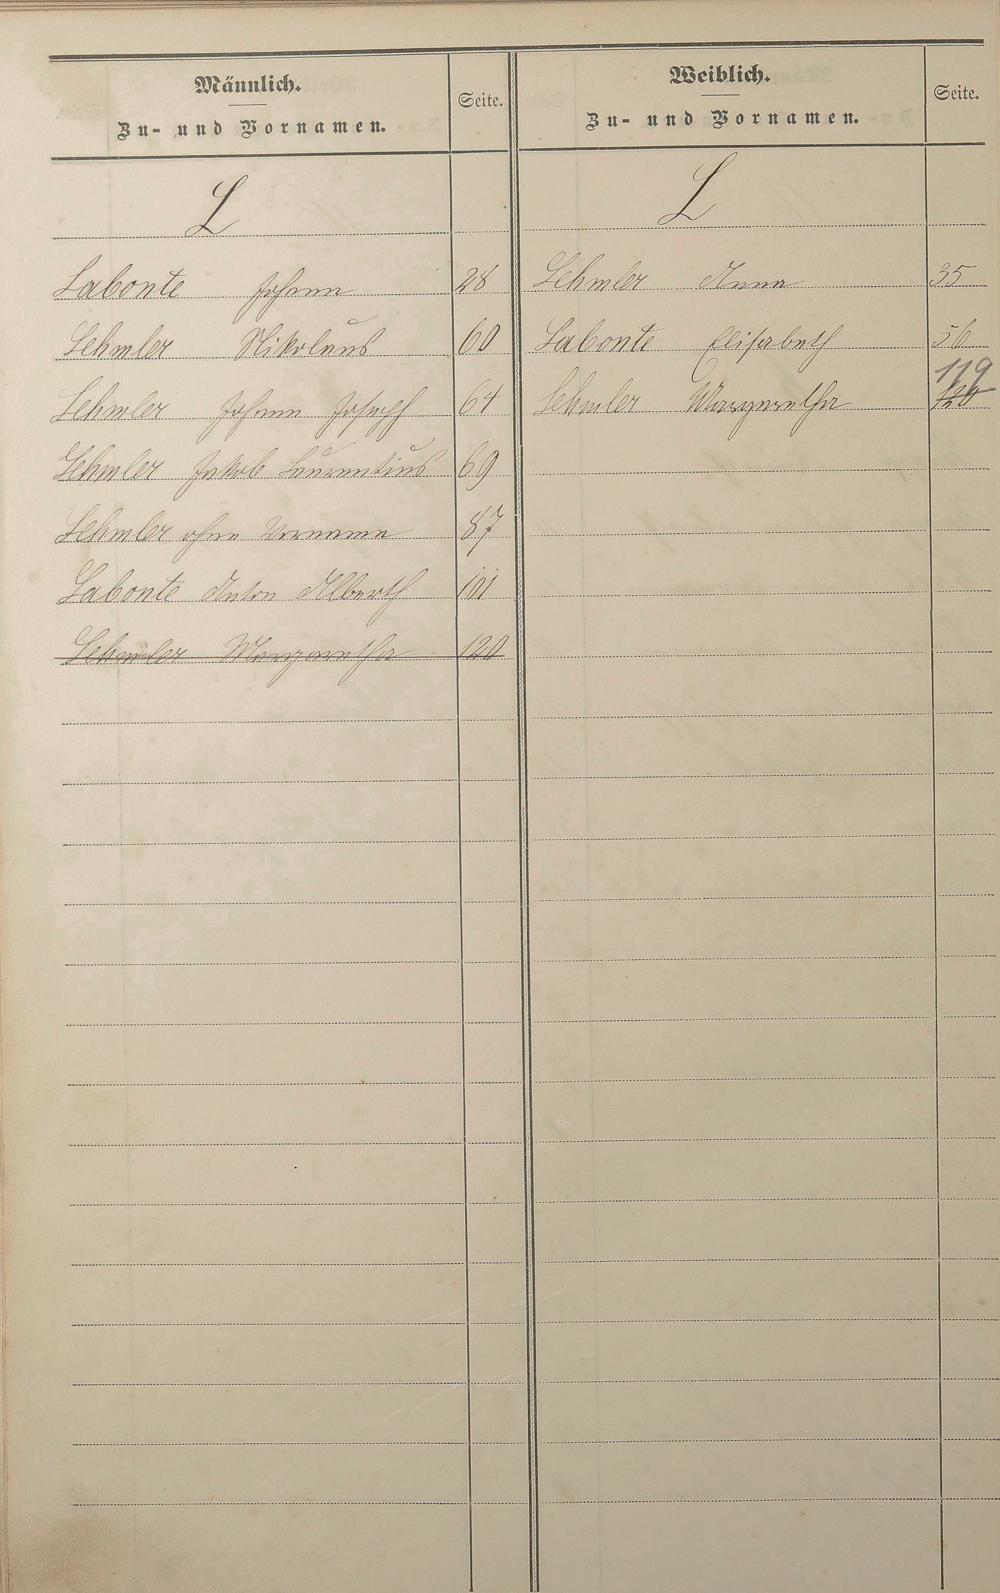 Männlich.
Zu- und Vornamen.
Seite.
L
Labonte Johann 28
Lehmler Nikolaus 60
Lehmler Johann Joseph 64
Lehmler Jakob Laurentius 69
Lehmler ohne Vorname 87
Labonte Anton Alberth 101
Lehmler Margaretha 120
Weiblich.
Zu- und Vornamen.
Seite.
L
Lehmler Anna 35
Labonte Elisabeth 56
119
Lehmler Margaretha 120